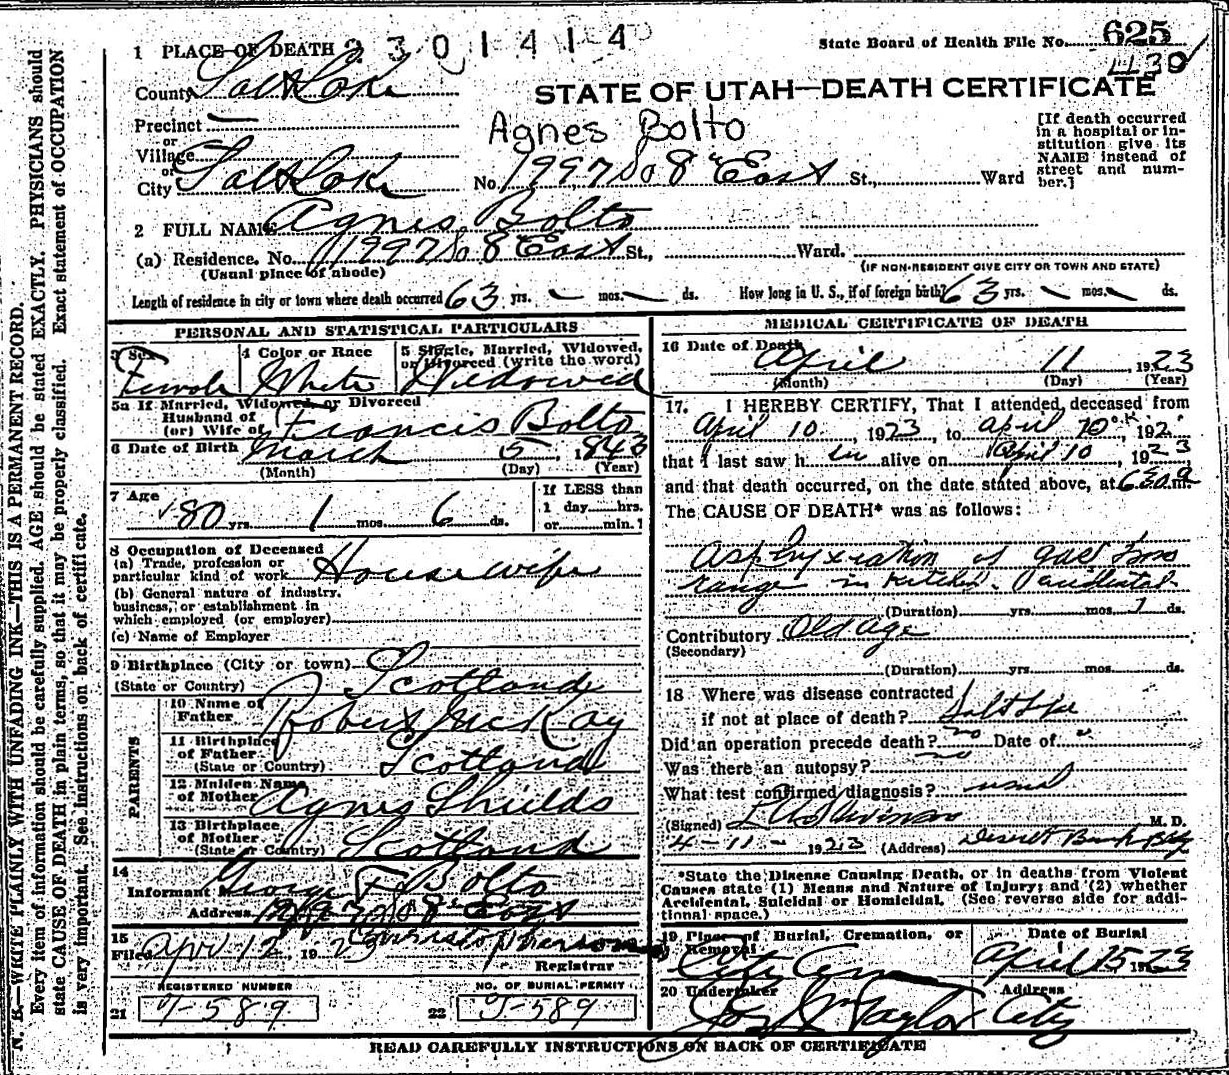 N. B.—WRITE PLAINLY WITH UNFADING INK—THIS IS A PERMANENT RECORD.
Every item of information should be carefully supplied. AGE should be stated EXACTLY. PHYSICIANS should
state CAUSE OF DEATH in plain terms, so that it may be properly classified. Exact statement of OCCUPATION
is very important. See instructions on back of certificate.
1 PLACE OF DEATH 2301414
State Board of Health File No. 625
County Salt Lake
STATE OF UTAH—DEATH CERTIFICATE
Precinct —
Agnes Bolto
or
Village
or
City Salt Lake No. 1997 So 8" East St., Ward
[If death occurred
in a hospital or in-
stitution give its
NAME instead of
street and num-
ber.]
2 FULL NAME Agnes Bolto
(a) Residence. No. 1997 So 8 East St., Ward.
(Usual place of abode) (IF NON-RESIDENT GIVE CITY OR TOWN AND STATE)
Length of residence in city or town where death occurred 63 yrs. — mos. — ds. How long in U. S., if of foreign birth? 63 yrs. — mos. — ds.
PERSONAL AND STATISTICAL PARTICULARS
3 Sex 4 Color or Race 5 Single, Married, Widowed,
or Divorced (write the word)
Female White Widowed
5a If Married, Widowed, or Divorced
Husband of
(or) Wife of Francis Bolto
6 Date of Birth March 5, 1843
(Month) (Day) (Year)
7 Age 80 yrs. 1 mos. 6 ds.
If LESS than
1 day hrs.
or min.
8 Occupation of Deceased
(a) Trade, profession or
particular kind of work Housewife
(b) General nature of industry,
business, or establishment in
which employed (or employer)
(c) Name of Employer
9 Birthplace (City or town)
(State or Country) Scotland
PARENTS
10 Name of
Father Robert McKay
11 Birthplace
of Father
(State or Country) Scotland
12 Maiden Name
of Mother Agnes Shields
13 Birthplace
of Mother
(State or Country) Scotland
14
Informant George F Bolto
Address So 8" East
15
Filed Apr 12, 1923
Registrar
REGISTERED NUMBER NO. OF BURIAL PERMIT
21 T-589 22 T-589
MEDICAL CERTIFICATE OF DEATH
16 Date of Death April 11, 1923
(Month) (Day) (Year)
17. I HEREBY CERTIFY, That I attended deceased from
April 10, 1923, to April 10, 192
that I last saw h alive on April 10, 1923
and that death occurred, on the date stated above, at 630 a m.
The CAUSE OF DEATH* was as follows:
Asphyxiation of gas from
range in kitchen. accidental
(Duration) yrs. mos. 1 ds.
Contributory Old age
(Secondary)
(Duration) yrs. mos. ds.
18 Where was disease contracted
if not at place of death? Salt Lake
Did an operation precede death? no Date of "
Was there an autopsy? no
What test confirmed diagnosis? usual
(Signed) M. D.
4-11-1923 (Address) Deseret Bank Bldg
*State the Disease Causing Death, or in deaths from Violent
Causes state (1) Means and Nature of Injury; and (2) whether
Accidental, Suicidal or Homicidal. (See reverse side for addi-
tional space.)
19 Place of Burial, Cremation, or
Removal Date of Burial
City Cem April 15 1923
20 Undertaker Address
Jos Wm Taylor City
READ CAREFULLY INSTRUCTIONS ON BACK OF CERTIFICATE